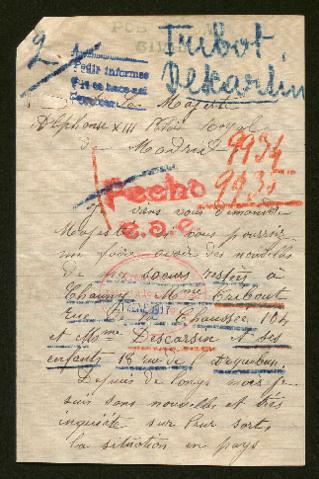 2.
Tribot,
Dekardin
Pedir informes
Sa Majesté
Alphonse XIII Palais Royal
de Madrid
9934
9935
Fecho
e.a.e.
Je viens vous demander
Majesté si vous pourriez
me faire avoir des nouvelles
de mes soeurs restées à
Chauny Mme Tribout
Rue de la Chaussée 104
et Mme Descarsin et ses
enfants 18 rue
Depuis de longs mois je
suis sans nouvelles et très
inquiète sur leur sort
la situation en pays